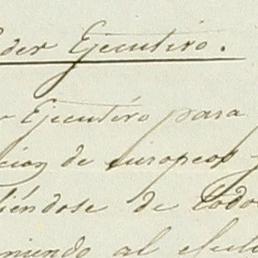 der Ejecutivo.
r Ejecutivo para
cion de europeos y
iéndose de todo
niendo al efecto